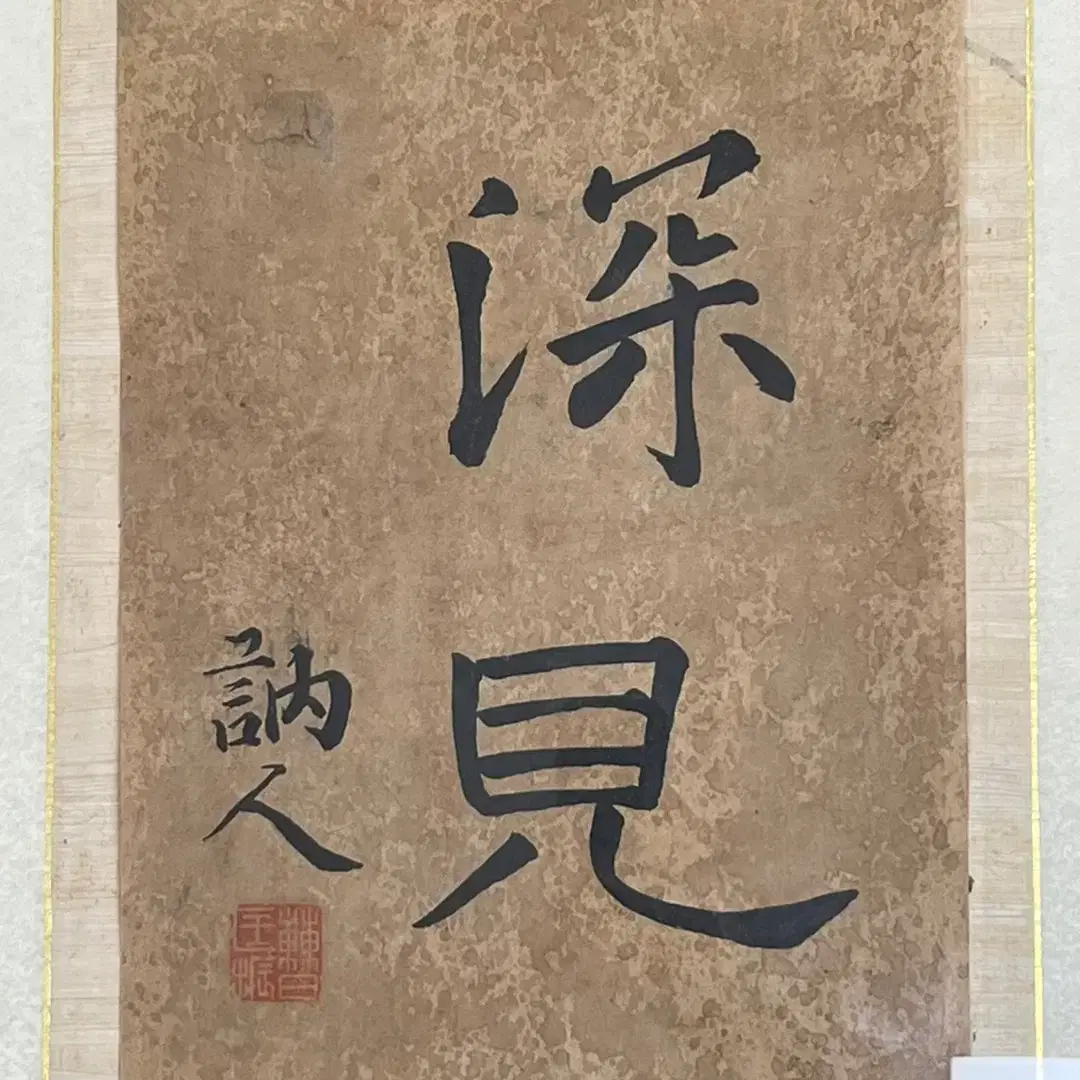 深見
訥人